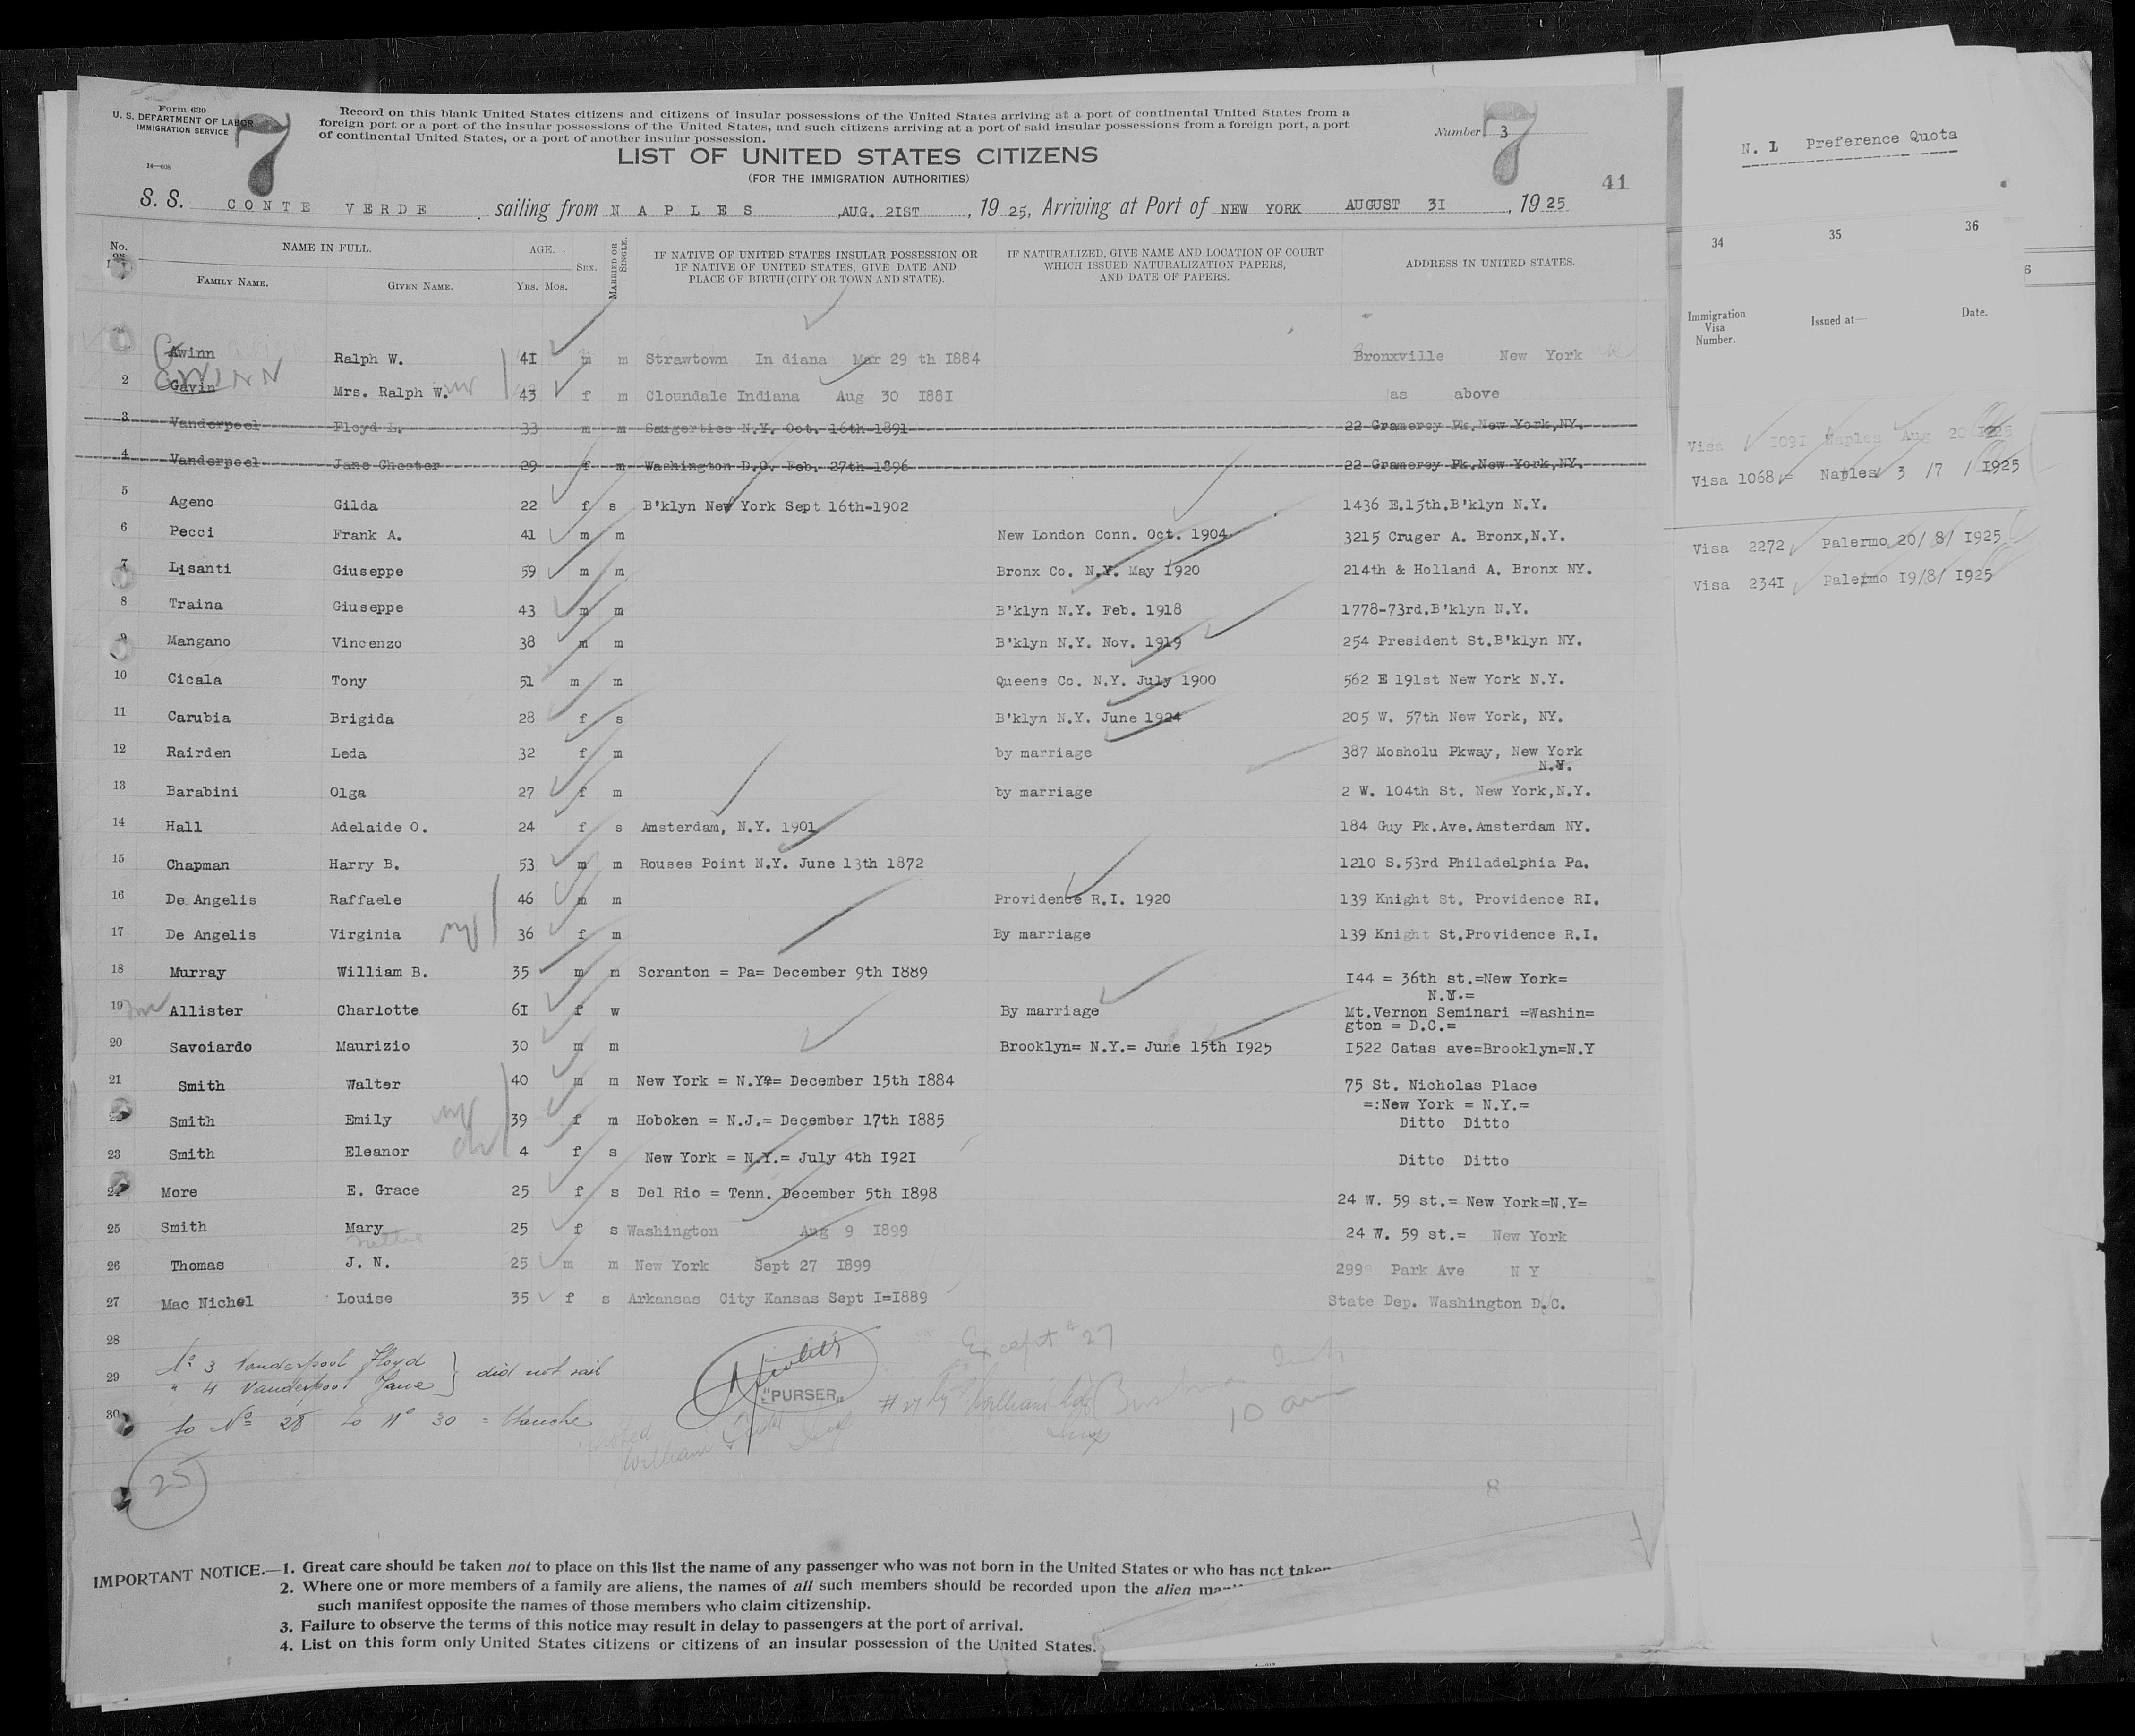 Form 630
U. S. DEPARTMENT OF LABOR
IMMIGRATION SERVICE
14—608
7
Record on this blank United States citizens and citizens of insular possessions of the United States arriving at a port of continental United States from a
foreign port or a port of the insular possessions of the United States, and such citizens arriving at a port of said insular possessions from a foreign port, a port
of continental United States, or a port of another insular possession.
Number 3
7
LIST OF UNITED STATES CITIZENS
(FOR THE IMMIGRATION AUTHORITIES)
41
S. S. CONTE VERDE sailing from NAPLES, AUG. 21ST, 1925, Arriving at Port of NEW YORK AUGUST 31, 1925
No. NAME IN FULL. AGE. SEX. MARRIED OR SINGLE. IF NATIVE OF UNITED STATES INSULAR POSSESSION OR IF NATIVE OF UNITED STATES, GIVE DATE AND PLACE OF BIRTH (CITY OR TOWN AND STATE). IF NATURALIZED, GIVE NAME AND LOCATION OF COURT WHICH ISSUED NATURALIZATION PAPERS, AND DATE OF PAPERS. ADDRESS IN UNITED STATES.
FAMILY NAME. GIVEN NAME. Yrs. Mos.
Gwinn Ralph W. 41 m m Strawtown In diana Mar 29 th 1884 Bronxville New York
GWINN
2 Gavin Mrs. Ralph W. 43 f m Cloundale Indiana Aug 30 1881 as above
3 Vanderpoel Floyd L. 33 m m Saugerties N.Y. Oct. 16th-1891 22 Gramercy Pk,New York,NY.
4 Vanderpoel Jane Chester 29 f m Washington D.C. Feb. 27th-1896 22 Gramercy Pk,New York,NY.
5 Ageno Gilda 22 f s B'klyn New York Sept 16th-1902 1436 E.15th.B'klyn N.Y.
6 Pecci Frank A. 41 m m New London Conn. Oct. 1904 3215 Cruger A. Bronx,N.Y.
7 Lisanti Giuseppe 59 m m Bronx Co. N.Y. May 1920 214th & Holland A. Bronx NY.
8 Traina Giuseppe 43 m m B'klyn N.Y. Feb. 1918 1778-73rd.B'klyn N.Y.
9 Mangano Vincenzo 38 m m B'klyn N.Y. Nov. 1919 254 President St.B'klyn NY.
10 Cicala Tony 51 m m Queens Co. N.Y. July 1900 562 E 191st New York N.Y.
11 Carubia Brigida 28 f s B'klyn N.Y. June 1924 205 W. 57th New York, NY.
12 Rairden Leda 32 f m by marriage 387 Mosholu Pkway, New York
N.Y.
13 Barabini Olga 27 f m by marriage 2 W. 104th St. New York,N.Y.
14 Hall Adelaide O. 24 f s Amsterdam, N.Y. 1901 184 Guy Pk.Ave.Amsterdam NY.
15 Chapman Harry B. 53 m m Rouses Point N.Y. June 13th 1872 1210 S.53rd Philadelphia Pa.
16 De Angelis Raffaele 46 m m Providence R.I. 1920 139 Knight St. Providence RI.
17 De Angelis Virginia 36 f m By marriage 139 Knight St.Providence R.I.
18 Murray William B. 35 m m Scranton = Pa= December 9th 1889 144 = 36th st.=New York=
N.Y.=
19 Allister Charlotte 61 f w By marriage Mt.Vernon Seminari =Washin=
gton = D.C.=
20 Savoiardo Maurizio 30 m m Brooklyn= N.Y.= June 15th 1925 1522 Catas ave=Brooklyn=N.Y
21 Smith Walter 40 m m New York = N.Y.= December 15th 1884 75 St. Nicholas Place
=:New York = N.Y.=
22 Smith Emily 39 f m Hoboken = N.J.= December 17th 1885 Ditto Ditto
23 Smith Eleanor 4 f s New York = N.Y.= July 4th 1921 Ditto Ditto
24 More E. Grace 25 f s Del Rio = Tenn. December 5th 1898 24 W. 59 st.= New York=N.Y=
25 Smith Mary 25 f s Washington Aug 9 1899 24 W. 59 st.= New York
Nettie
26 Thomas J. N. 25 m m New York Sept 27 1899 299 Park Ave N Y
27 Mac Nichel Louise 35 f s Arkansas City Kansas Sept 1=1889 State Dep. Washington D.C.
28
29
30
No 3 Vanderpool Floyd
" 4 Vanderpool Jane } did not sail
to No 28 to No 30 = blanche
Except #27
"PURSER"
10 am
25
8
IMPORTANT NOTICE.—1. Great care should be taken not to place on this list the name of any passenger who was not born in the United States or who has not taken
2. Where one or more members of a family are aliens, the names of all such members should be recorded upon the alien
such manifest opposite the names of those members who claim citizenship.
3. Failure to observe the terms of this notice may result in delay to passengers at the port of arrival.
4. List on this form only United States citizens or citizens of an insular possession of the United States.
N. 1 Preference Quota
34 35 36
6
Immigration Visa Number. Issued at— Date.
Visa 1091 Naples Aug 20 1925
Visa 1068= Naples 3 /7 / 1925
Visa 2272 Palermo 20/ 8/ 1925
Visa 2341 Palermo 19/8/ 1925